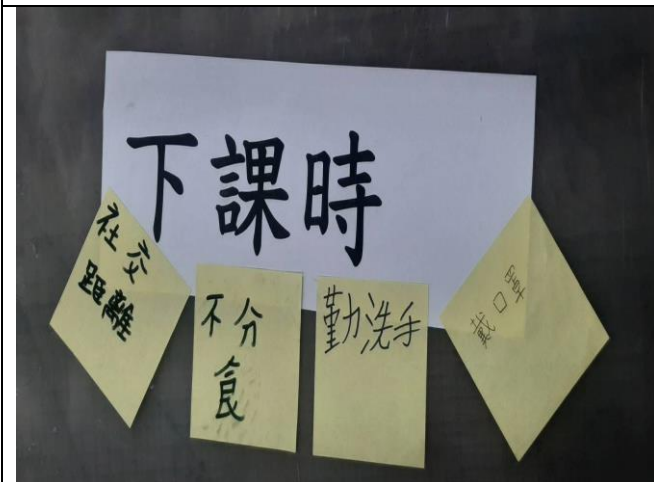 下課時
社交
距離
不分
食
勤洗手
戴口罩